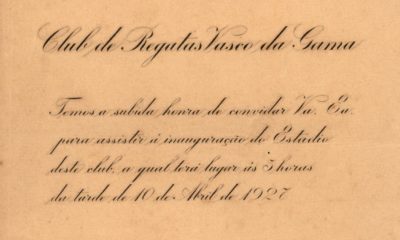 Club de Regatas Vasco da Gama
Temos a subida honra de convidar Va. Ea.
para assistir á inauguração do Estadio
deste club, a qual terá lugar ás 3 horas
da tarde de 10 de Abril de 1927